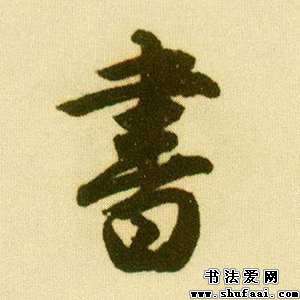 書
书法爱网
www.shufaai.com